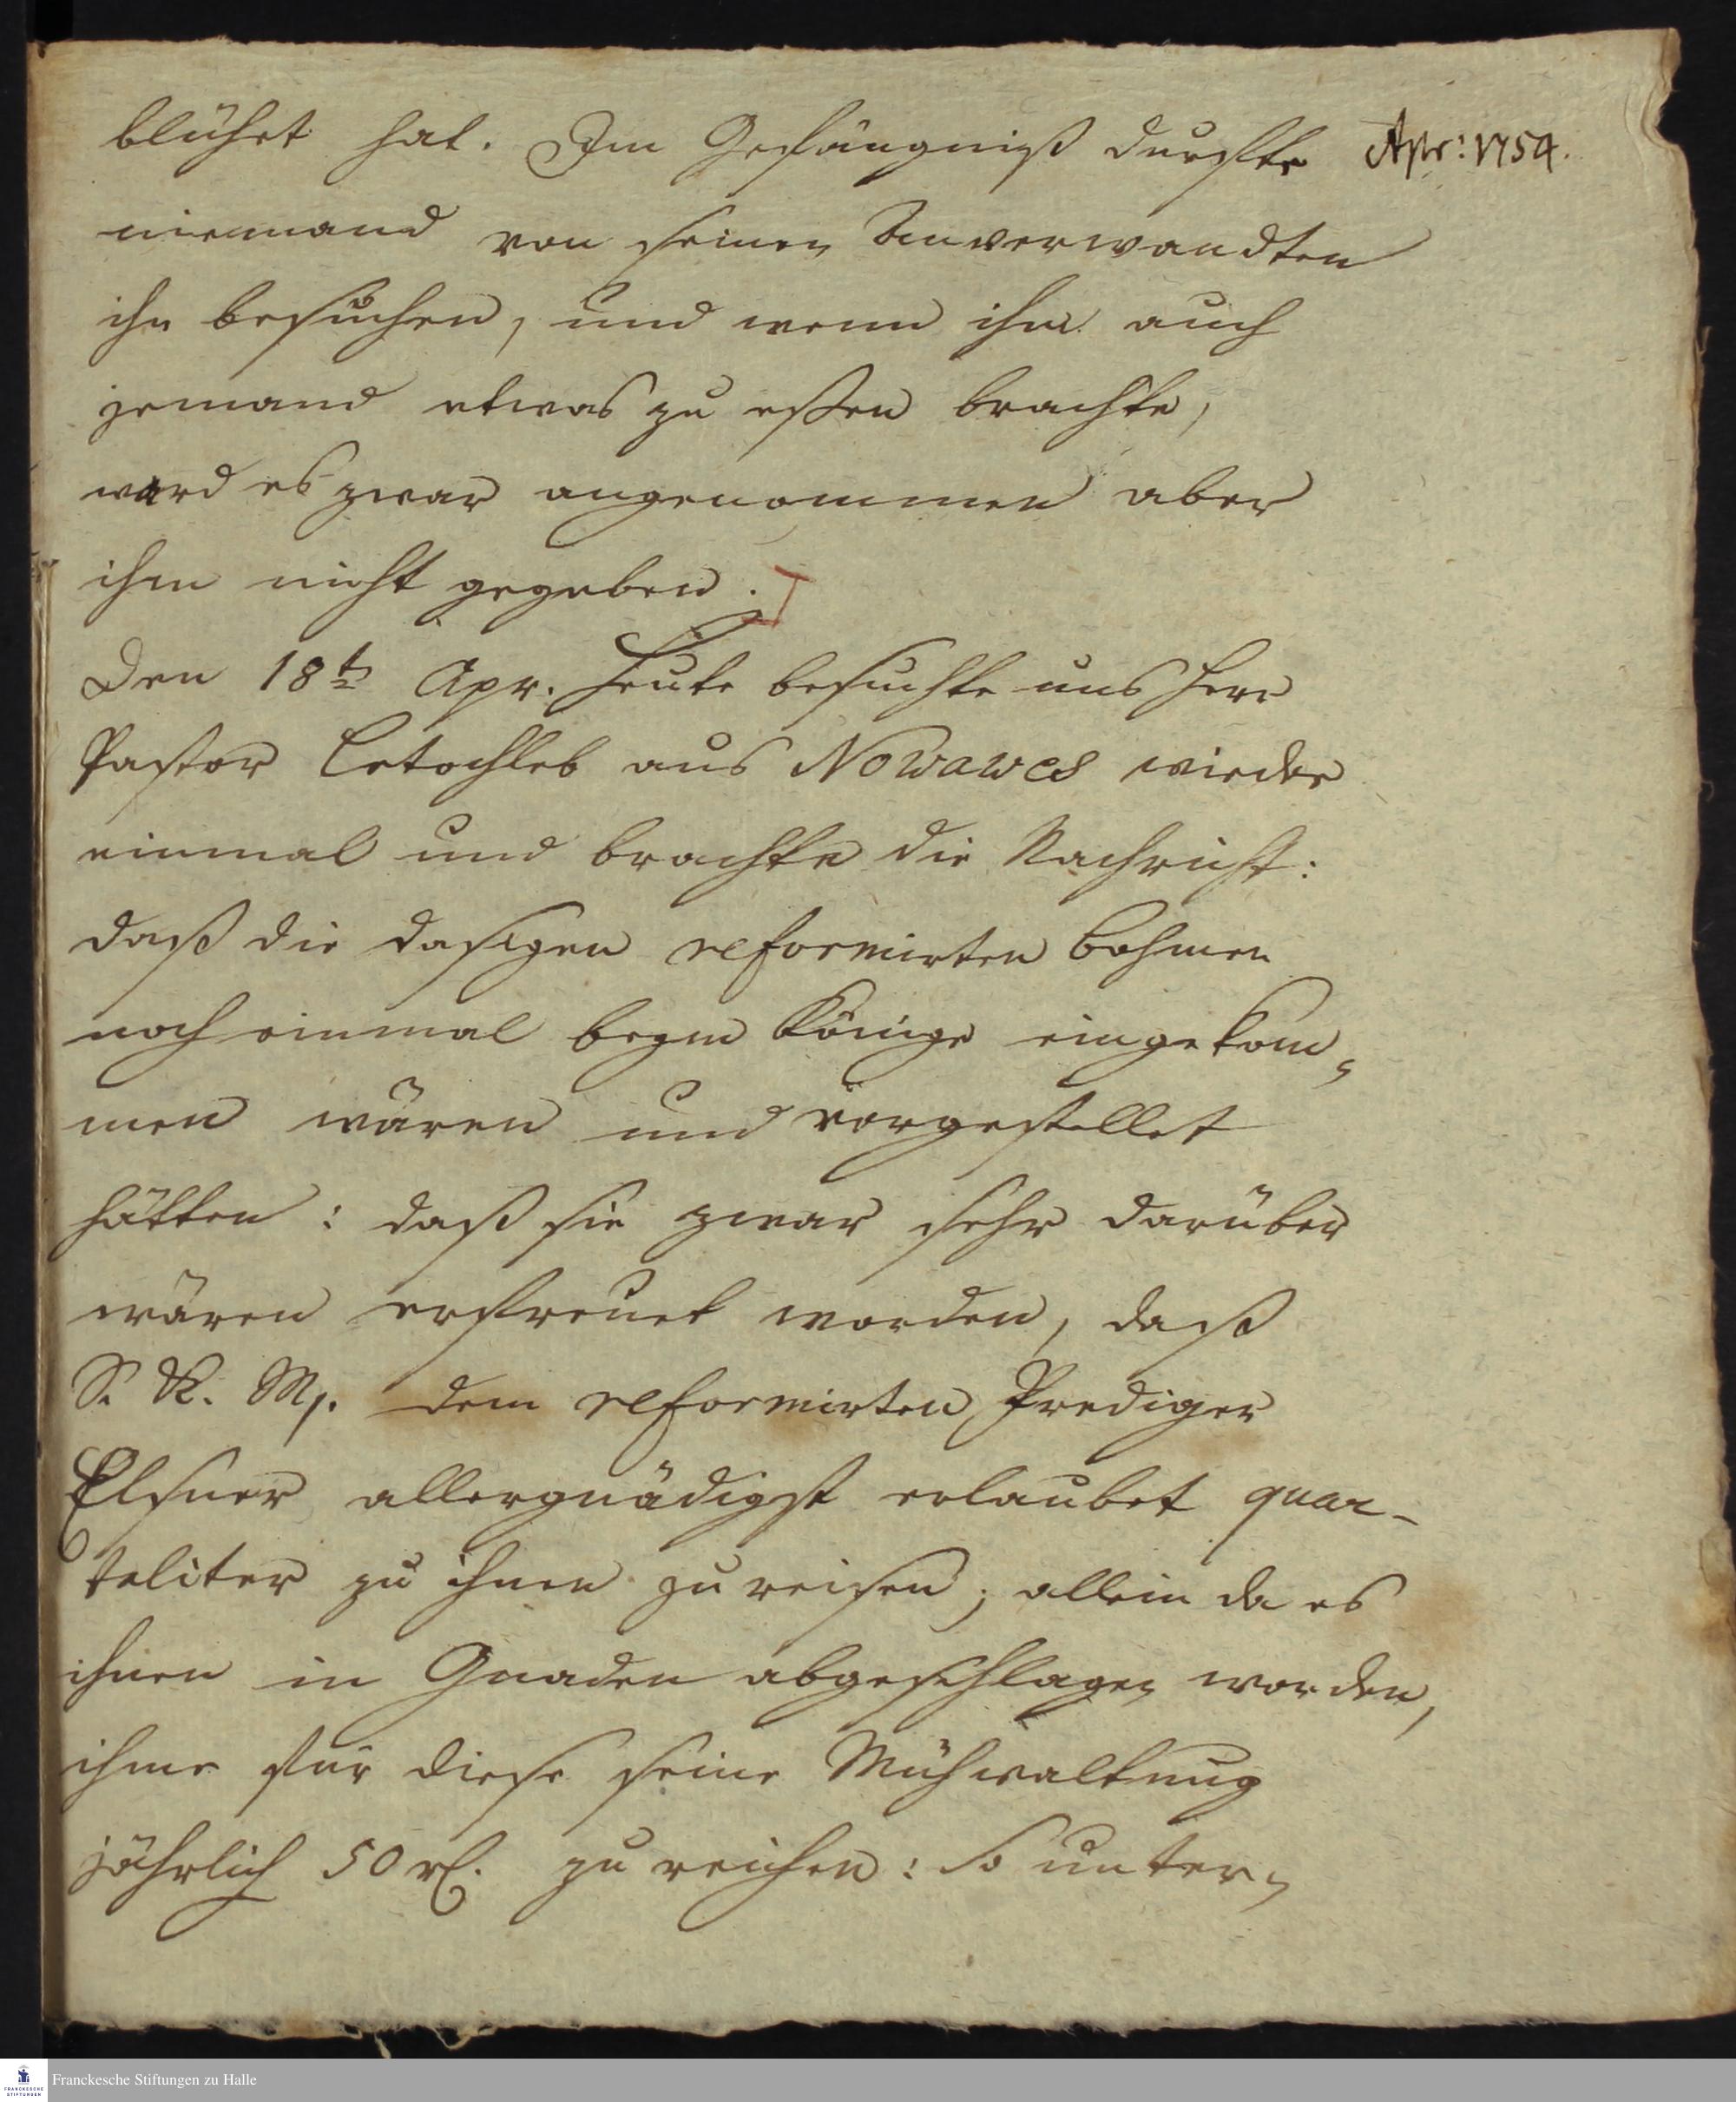 blühet hat. Im Gefängniß durfte Apr: 1754.
niemand von seinen Anverwandten
ihn besuchen, und wenn ihm auch
jemand etwas zu eßen brachte,
ward es zwar angenommen aber
ihm nicht gegeben.
Den 18t. Apr. Heute besuchte uns Herr
Pastor Letochleb aus Nowawes wieder
einmal und brachte die Nachricht:
daß die dasigen reformirten Böhmen
noch einmal beym Könige eingekom¬
men wären und vorgestellet
hätten: daß sie zwar sehr darüber
wären erfreuet worden, daß
S. K. Mj. dem reformirten Prediger
Elsner allergnädigst erlaubet quar-
taliter zu ihnen zu reisen; allein da es
ihnen in Gnaden abgeschlagen worden,
ihme für diese seine Mühwaltung
jährlich 50 rl. zu reichen: So unter¬
Franckesche Stiftungen zu Halle
FRANCKESCHE
STIFTUNGEN